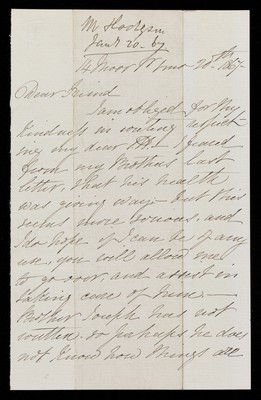 M Hodgson
Jan'y 20-67
20th 1867
Dear Friend
I am obliged for thy
kindness in writing respect
ing my dear I feared
from my Brothers last
letter, that his health
was giving way - but this
seems more serious, and
I do hope if I can be of any
use, you will allow me
to go over, and assist in
taking care of him. -
Brother Joseph has not
written so perhaps he does
not know how things are